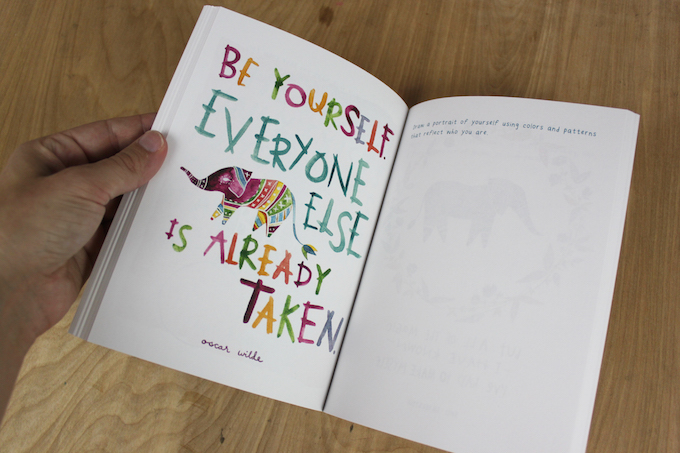 BE YOURSELF.
EVERYONE
ELSE
IS ALREADY
TAKEN.
oscar wilde
Draw a portrait of yourself using colors and patterns
that reflect who you are.